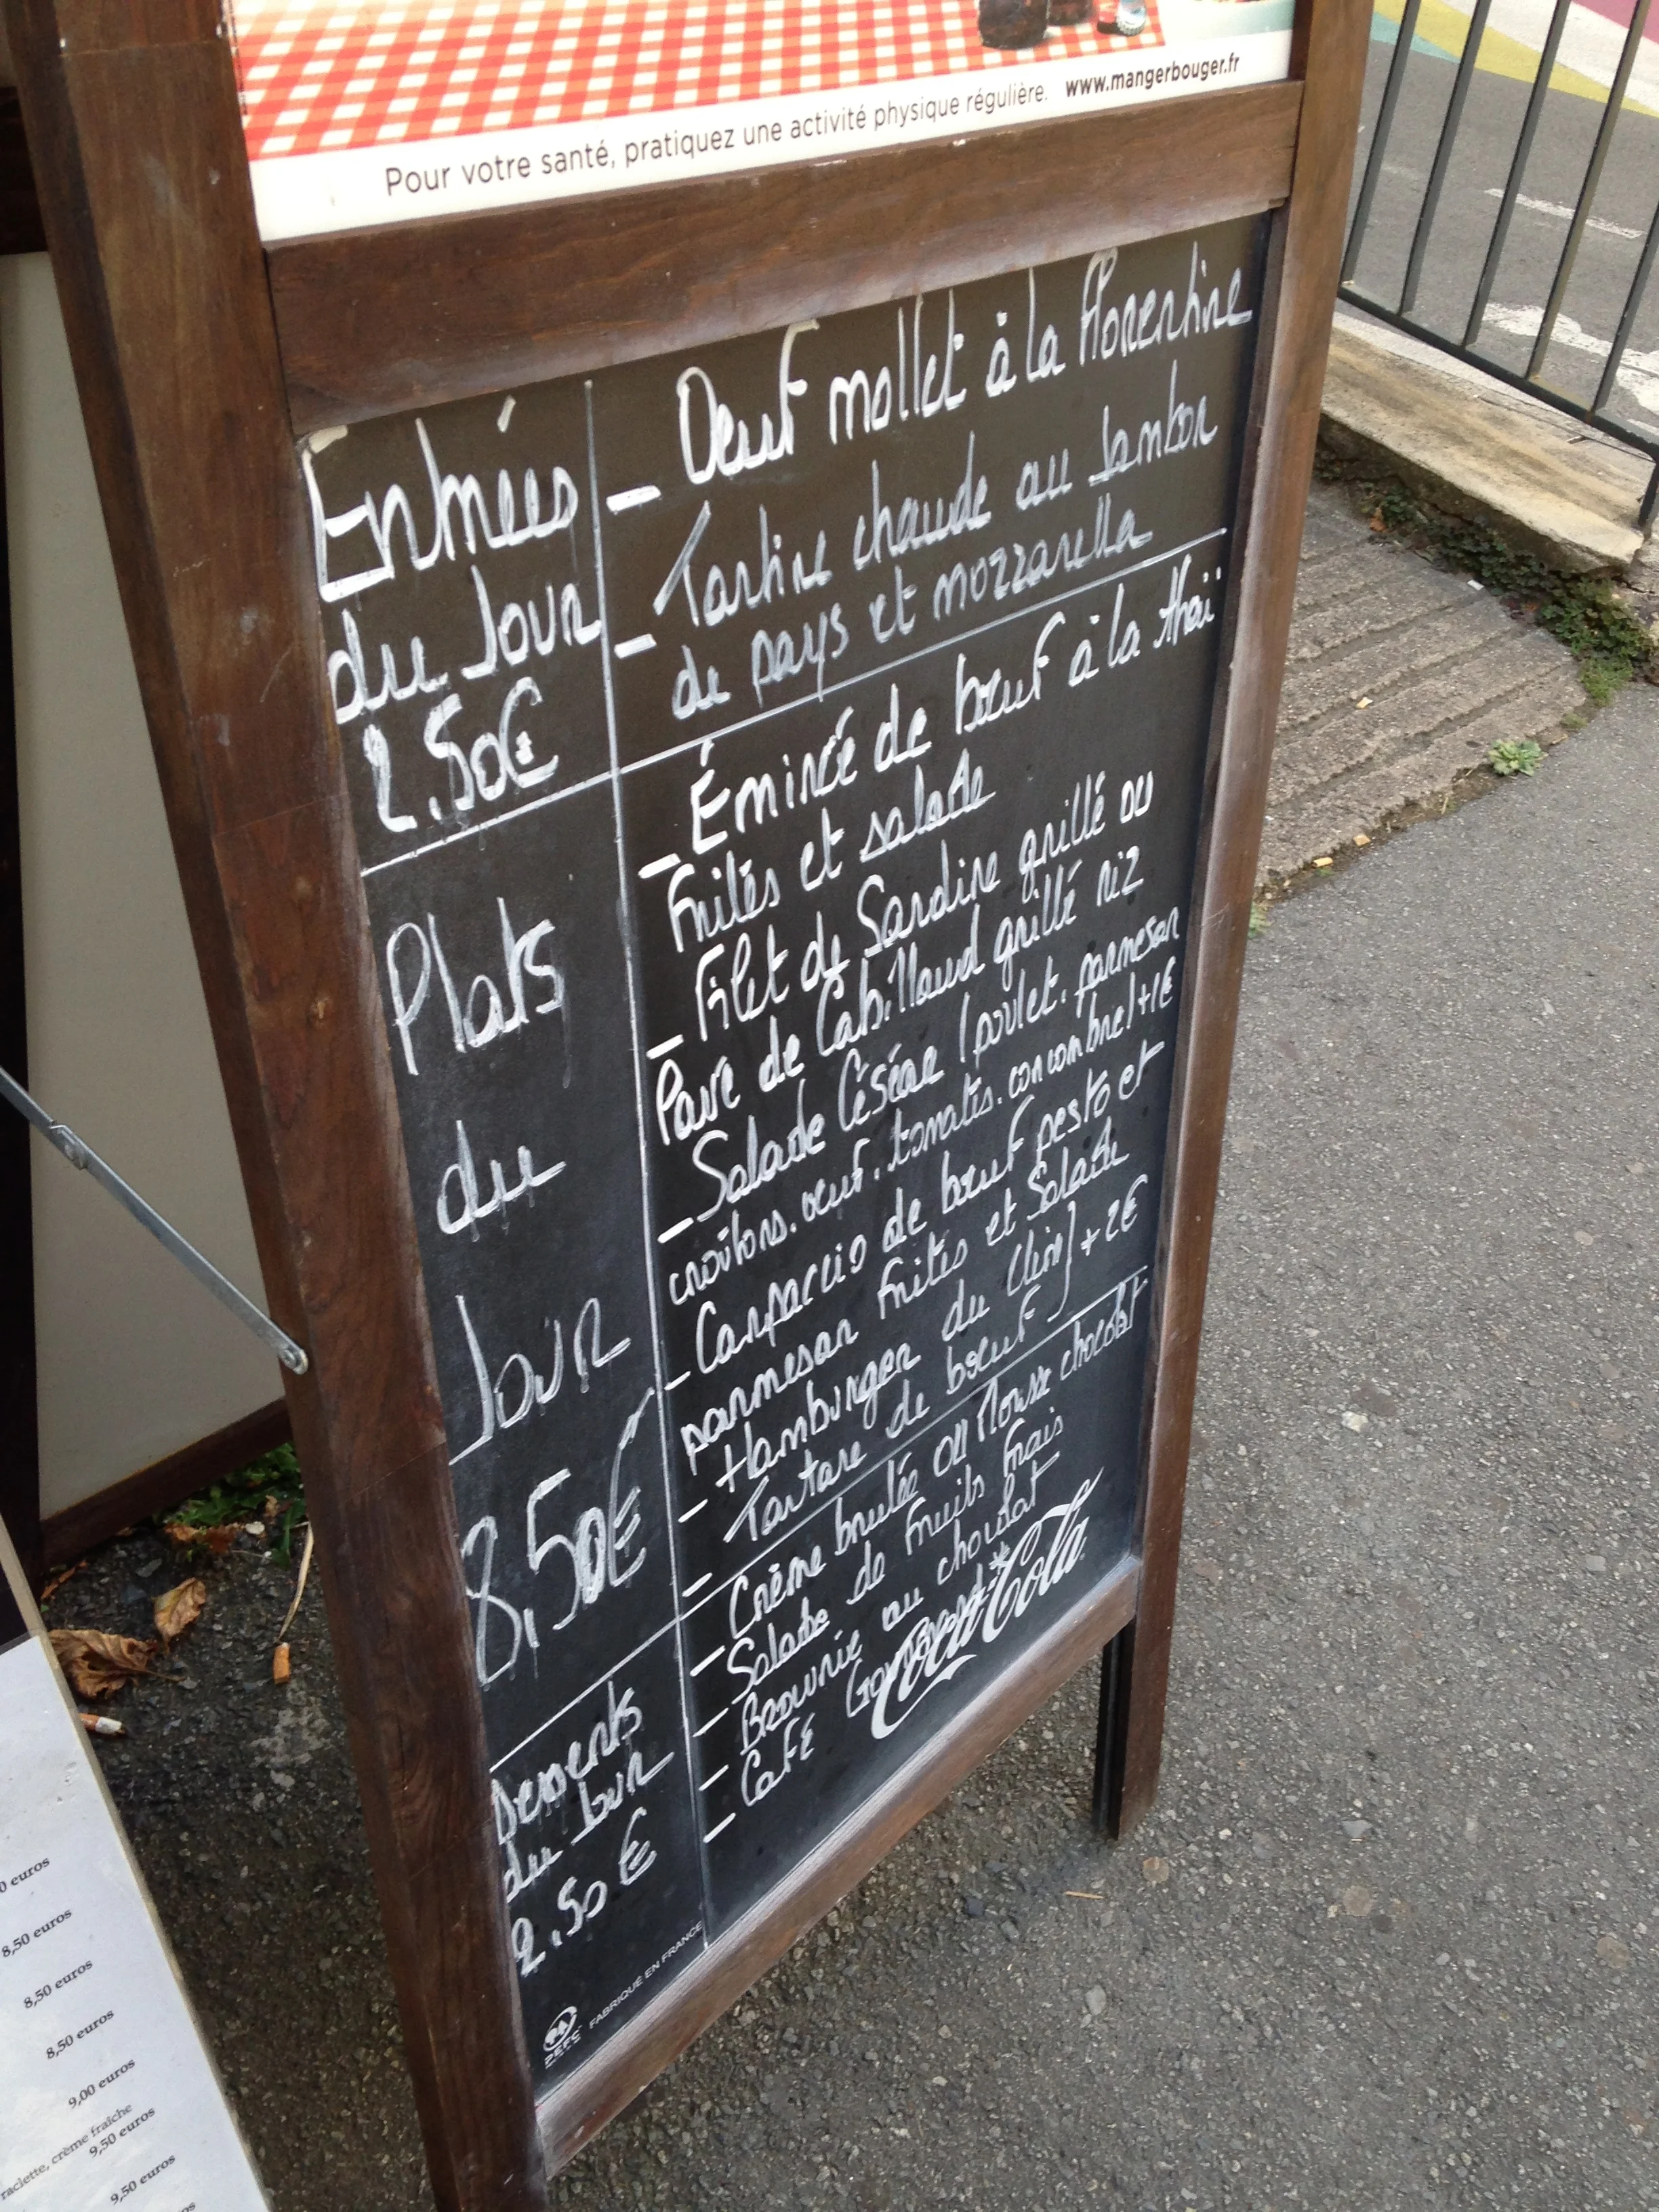 Pour votre santé, pratiquez une activité physique régulière. www.mangerbouger.fr
Entrées
du Jour
2.50€
- Oeuf mollet à la florentine
- Tartine chaude au Jambon
de pays et mozzarella
Plats
du
Jour
8,50€
- Émincé de bœuf à la thaï
Frites et salade
- Filet de Sardine grillé ou
Pavé de Cabillaud grillé riz
- Salade César (poulet. parmesan
croûtons. œuf. tomates. concombre) +1€
- Carpaccio de bœuf pesto et
parmesan Frites et Salade
- Hamburger du Chin} + 2€
- Tartare de bœuf
Desserts
du Jour
2.50 €
- Crème brulée ou Mousse chocolat
- Salade de Fruits Frais
- Brownie au chocolat
- Café
Coca-Cola
PEFC
FABRIQUÉ EN FRANCE
0 euros
8,50 euros
8,50 euros
8,50 euros
9,00 euros
raclette, crème fraîche
9,50 euros
9,50 euros